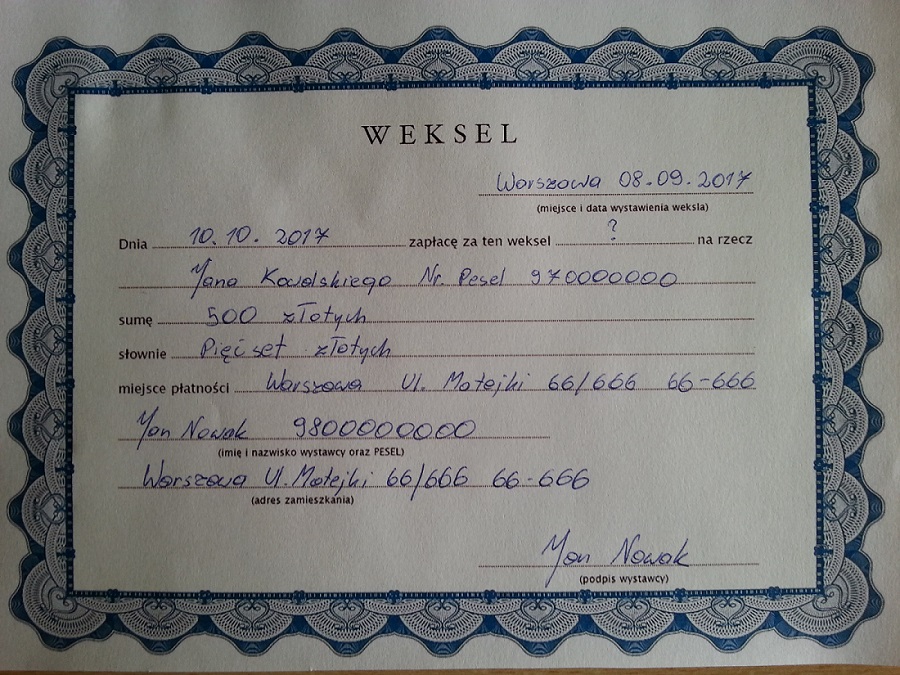 WEKSEL
Warszawa 08.09.2017
(miejsce i data wystawienia weksla)
Dnia 10.10.2017 zapłacę za ten weksel ? na rzecz
Jana Kowalskiego Nr. Pesel 970000000
sumę 500 złotych
słownie Pięćset złotych
miejsce płatności Warszawa Ul. Matejki 66/666 66-666
Jan Nowak 9800000000
(imię i nazwisko wystawcy oraz PESEL)
Warszawa Ul. Matejki 66/666 66-666
(adres zamieszkania)
Jan Nowak
(podpis wystawcy)